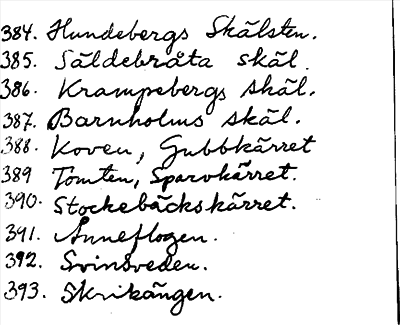 384. Hundebergs Skälsten.
385. Säldebråta skäl.
386. Krampebergs skäl.
387. Barnholms skäl.
388. Koven, Gubbkärret
389 Tomten, Sparvkärret.
390. Stockebäckskärret.
391. Anneflogen.
392. Svinsveden.
393. Skrikängen.